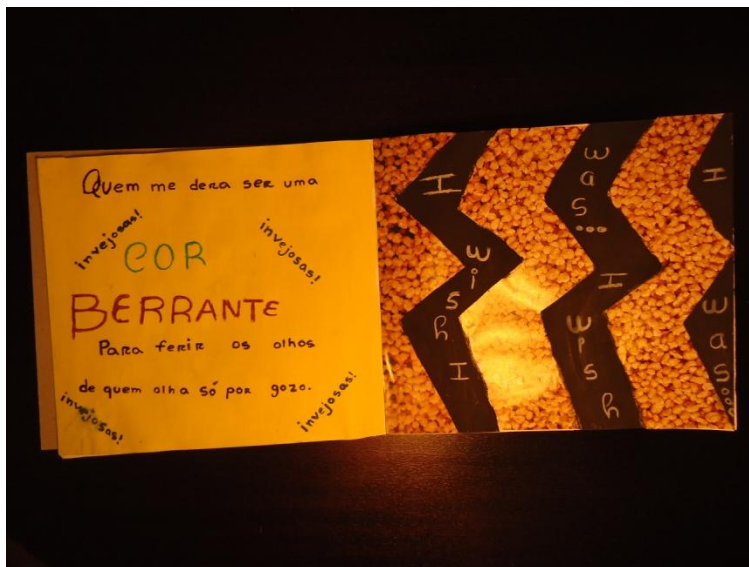 Quem me dera ser uma
invejosas!
invejosas!
COR
BERRANTE
Para ferir os olhos
de quem olha só por gozo.
invejosas!
invejosas!
I wish I
was... I wish
I was...